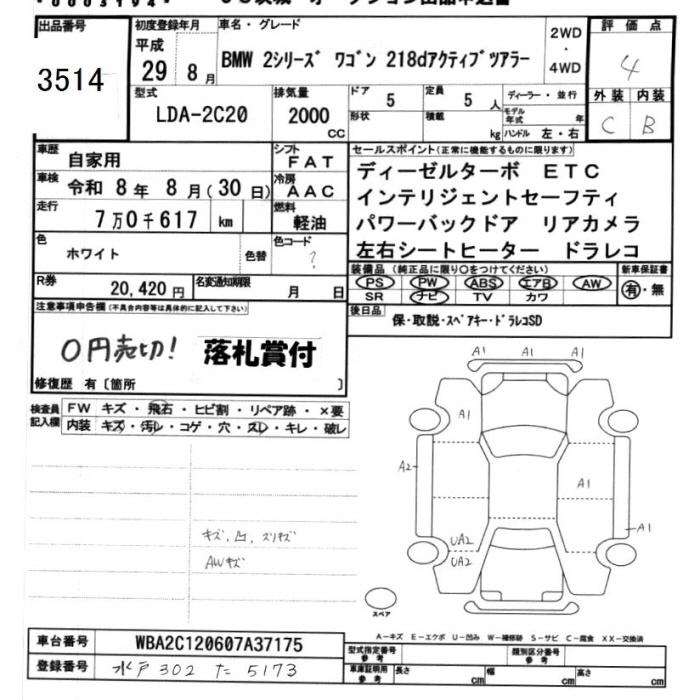 出品番号 初度登録年月 車名・グレード 評価点
3514 平成 29 8月 BMW 2シリーズ ワゴン 218dアクティブツアラー 2WD・4WD 4
型式 排気量 ドア 定員 ディーラー・並行 外装 内装
LDA-2C20 2000 CC 5 5人 モデル年式 年 C B
形状 積載 kg ハンドル 左・右
車歴 自家用 シフト FAT セールスポイント(正常に機能するものに限ります)
車検 令和 8年 8月(30日) 冷房 AAC
走行 7万0千617 km 燃料 軽油
ディーゼルターボ ETC
インテリジェントセーフティ
パワーバックドア リアカメラ
左右シートヒーター ドラレコ
色 ホワイト 色替 色コード ?
装備品(純正品に限り○をつけてください) 新車保証書
PS PW ABS エアB AW 有・無
SR ナビ TV カワ
R券 20,420円 名変通知期限 月 日
後日品 保・取説・スペアキー・ドラレコSD
注意事項申告欄(不具合内容等は具体的に記入して下さい)
0円売切! 落札賞付
修復歴 有〔箇所 〕
検査員記入欄 FW キズ・飛石・ヒビ割・リペア跡・×要
内装 キズ・汚レ・コゲ・穴・スレ・キレ・破レ
A1 A1
A1
A2 A1
A1
UA2
UA2
キズ、凹、スリキズ
AWキズ
スペア
A-キズ E-エクボ U-凹み W-補修跡 S-サビ C-腐食 XX-交換済
車台番号 WBA2C120607A37175 型式指定番号 参考 類別区分番号 参考
登録番号 水戸 302 た 5173 車庫証明用 参考 長さ cm 幅 cm 高さ cm